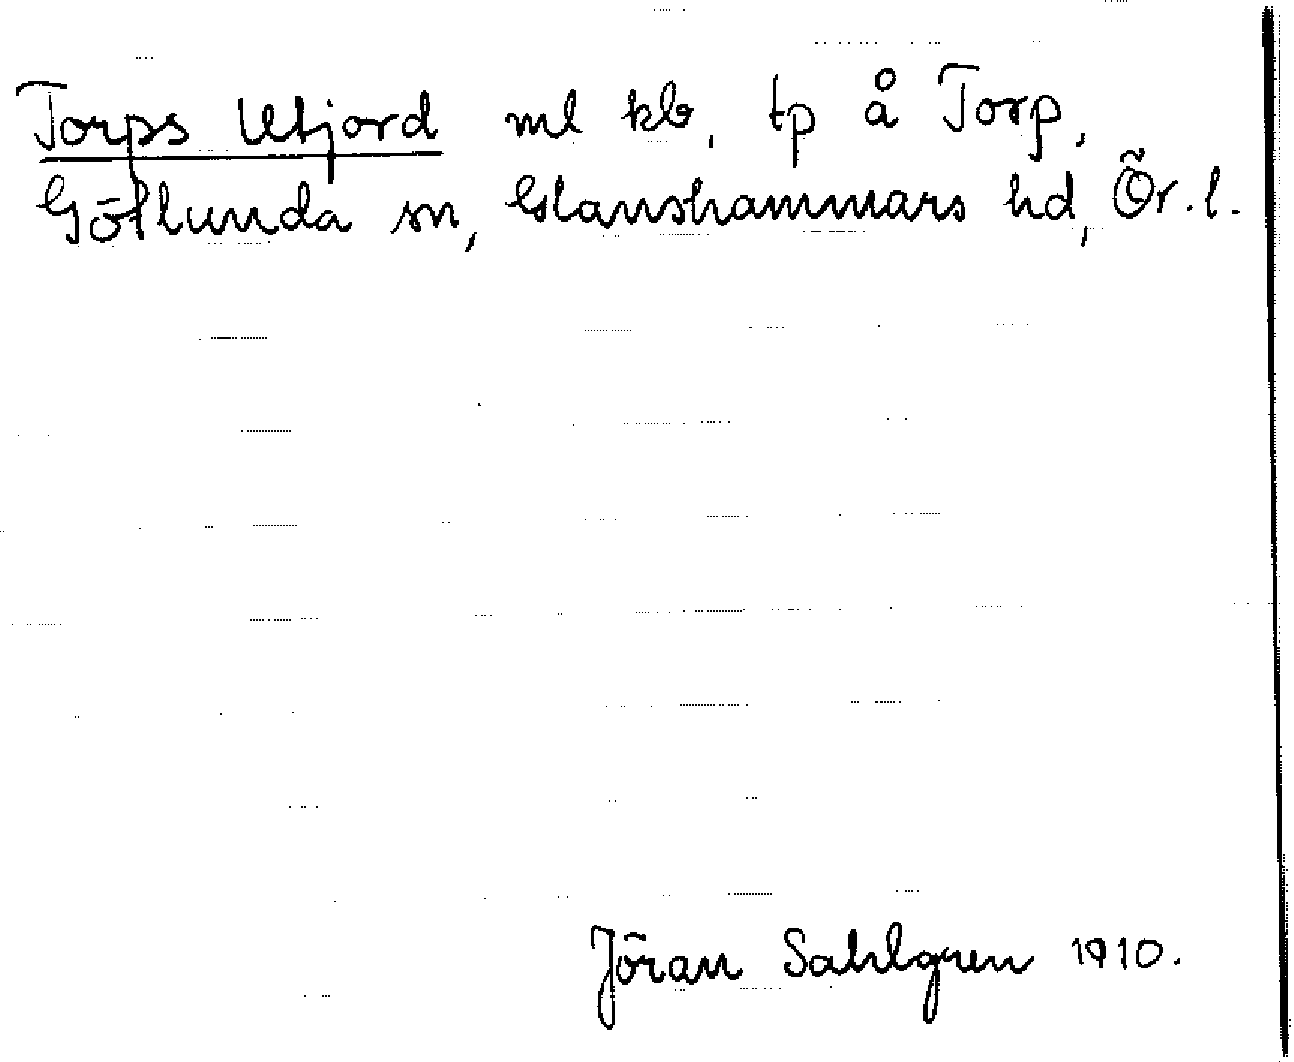 Torps Utjord ml kb, tp å Torp,
Götlunda sn, Glanshammars hd, Ör. l.
Jöran Sahlgren 1910.